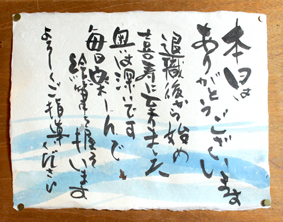 本日は
ありがとうございます
退職後から始め
喜寿に来ました
奥は深いです
毎日楽しんで
絵筆を握って描います
よろしくご指導ください